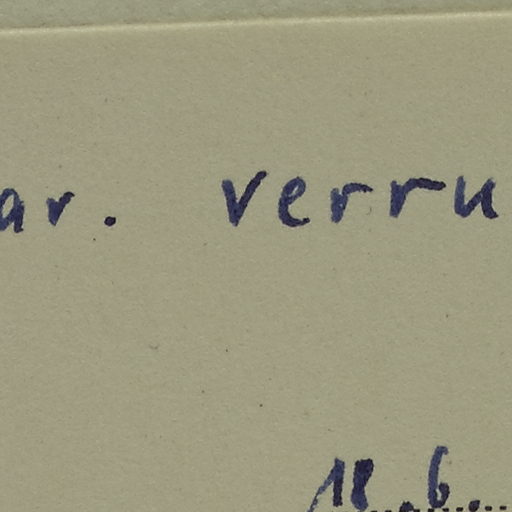 ar. verru
18.6.